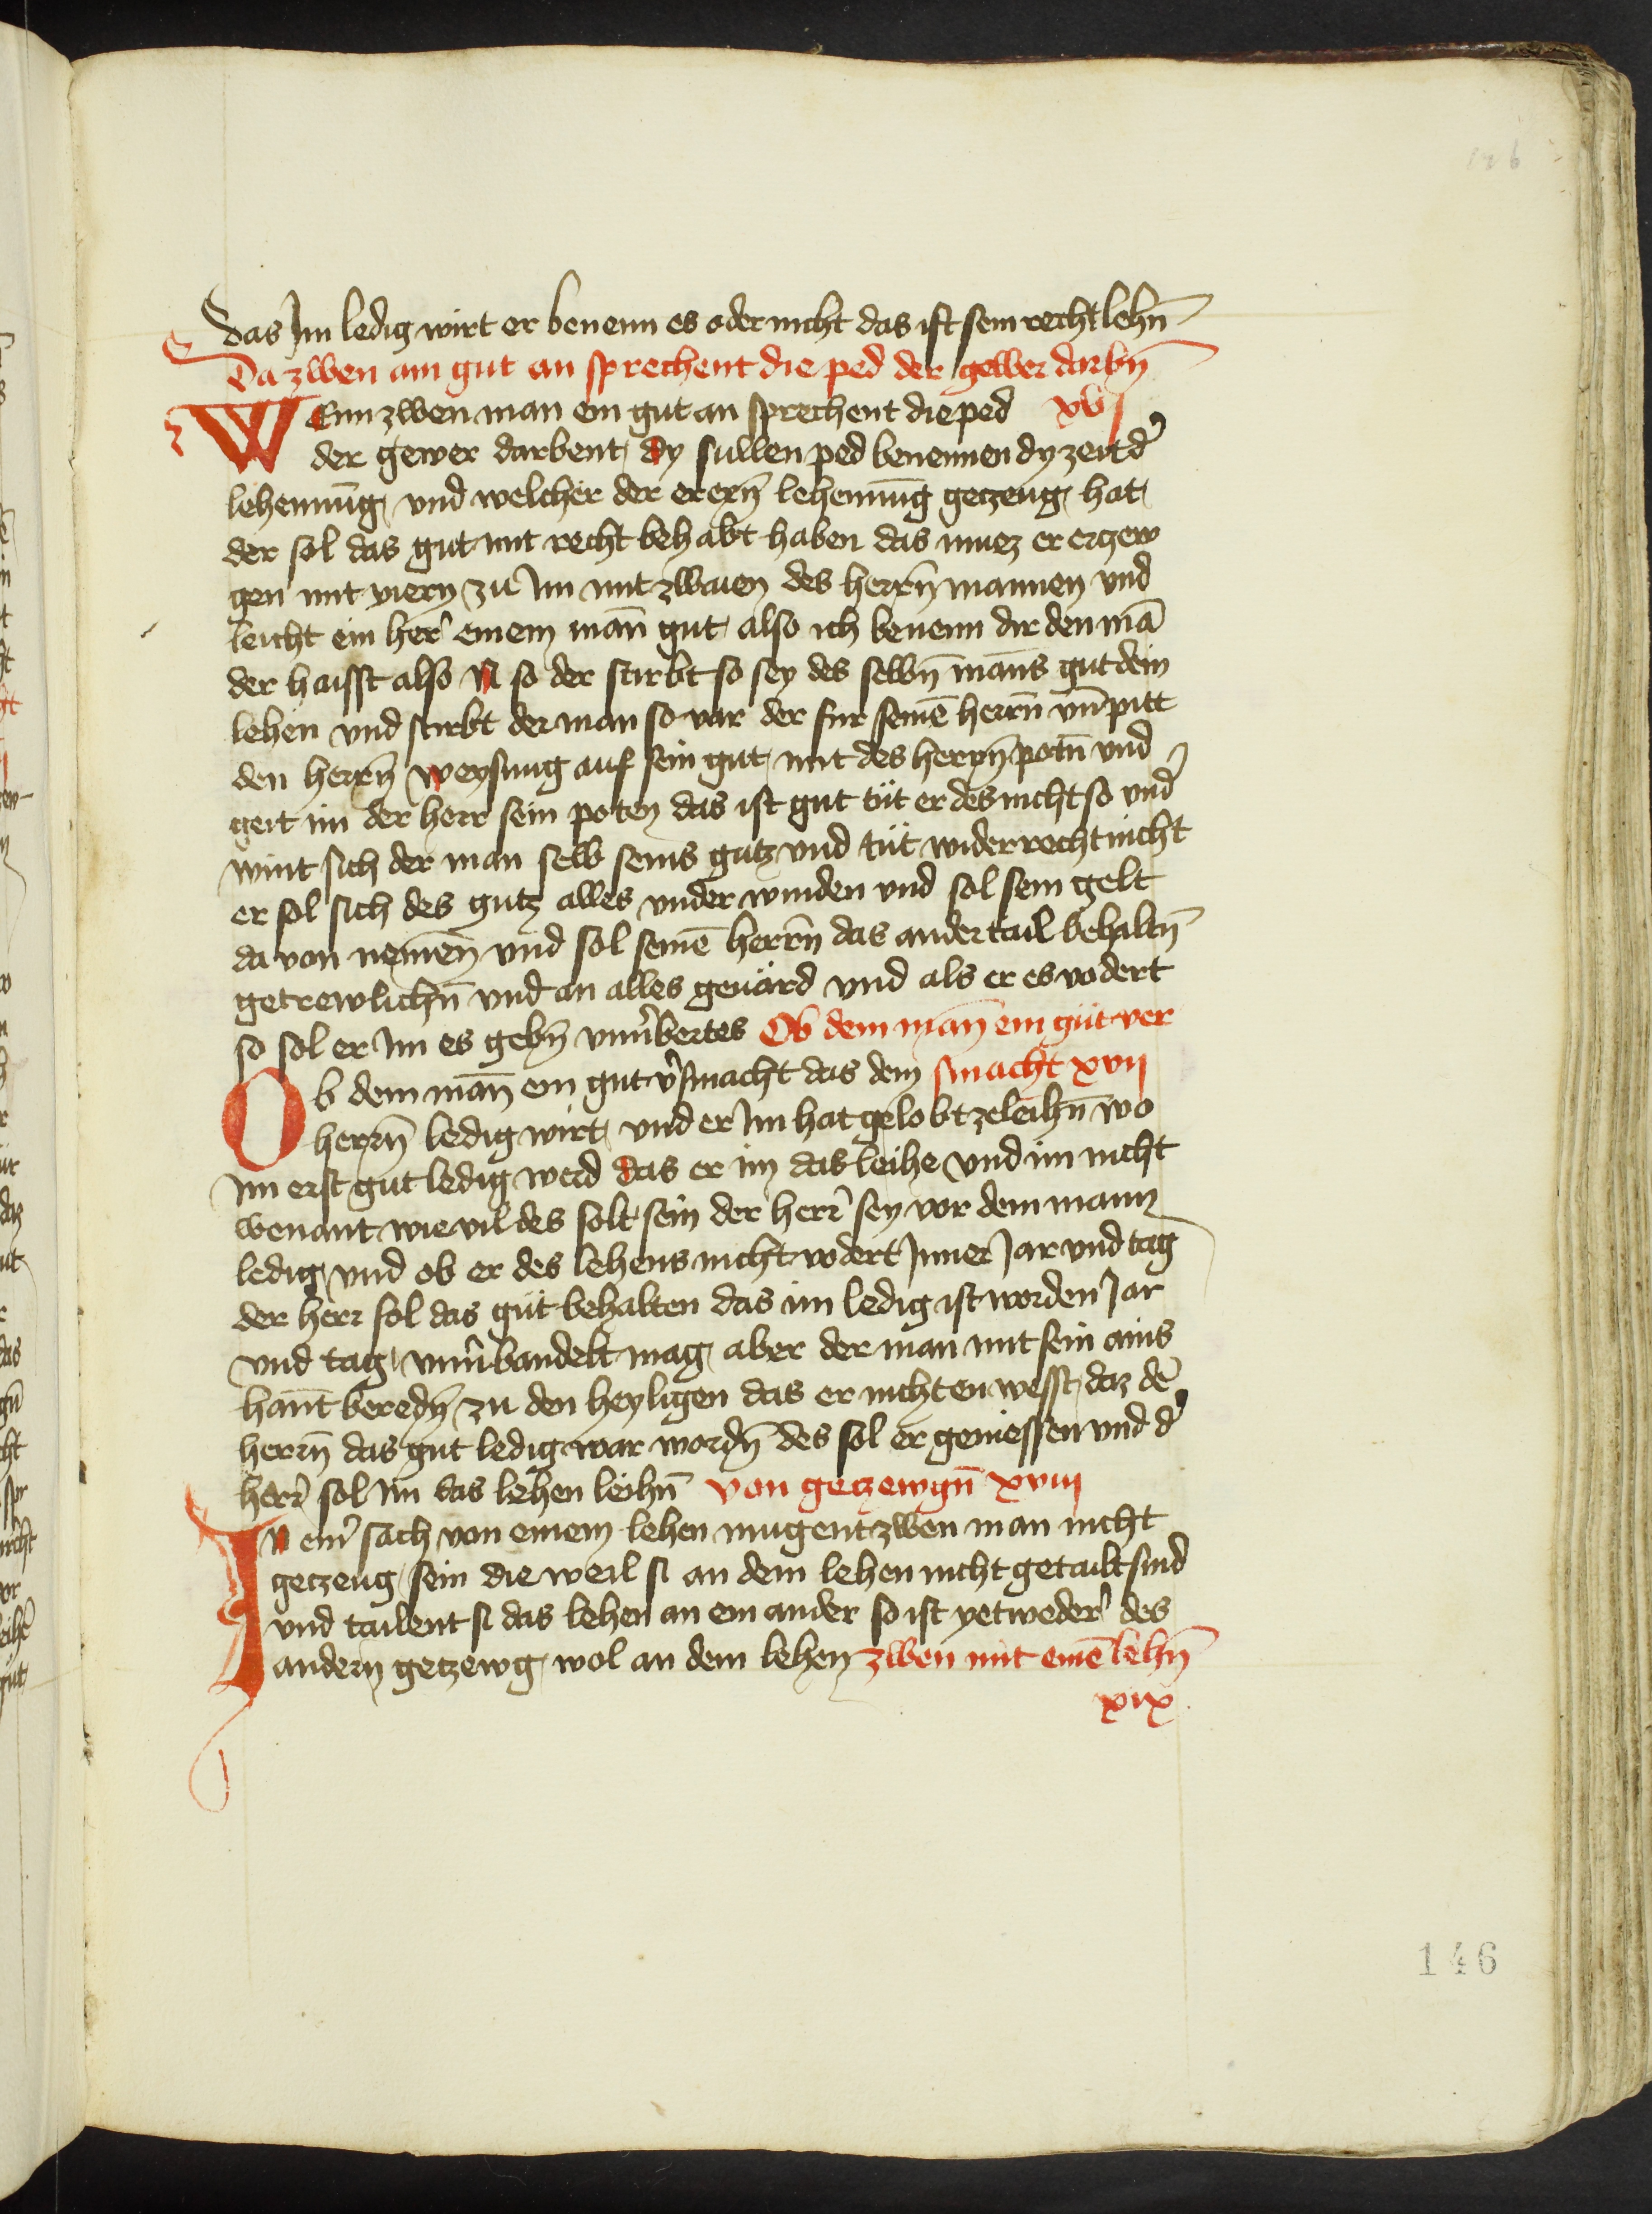 das Im ledig wirt er benenn es oder nicht das ist sein recht lehn̄
Da zwen ain gut an sprechent die ped der gewer darbn̄
WEnn zwen man ein gut an sprechent die ped xvj
der gewer darbent dy sullen ped benennen dy zeit d'
lehennūg vnd welcher der erern̄ lehennūg getzeug hat
der sol das gut mit recht behabt haben das muez er ertzew
gen mit viern zu Im mit zwaien des herrn̄ mannen vnd
leicht ein her' einem man̄ gut also ich benenn dir den mā
der haisst also N so der stirbt so sey des selbn̄ man̄s gut dein
lehen vnd stirbt der man so var der fur seinē herrn̄ vn̄ pitt
den herrn̄ weysung auf sein gut mit des herrn̄ potn̄ vnd
geit im der herr sein poten das ist gut tut er des nicht so vnd'
wint sich der man selb seins gutz vnd tut wider recht nicht
er sol sich des gutz alles vnder winden vnd sol sein gelt
da von nemen̄ vnd sol seinē herrn̄ das ander tail behaltn̄
getrewlichn̄ vnd an alles geuärd vnd als er es vodert
so sol er Im es gebn̄ vnu'kertes Ob dem man̄ ein gut ver
Ob dem man̄ ein gut v'smacht das dem smacht xvij
herrn̄ ledig wirt vnd er Im hat gelobt zeleihn̄ wo
Im erst gut ledig werd das er im das leihe vnd im nicht
wenant wie vil des solt sein der herr' sey vor dem mann
ledig vnd ob er des lehens nicht vodert Inner Jar vnd tag
der herr sol das gut behalten das im ledig ist worden Jar
vnd tag vnu'bandelt mag aber der man mit sein ains
han̄t beredn̄ zu den heyligen das er nicht en wesst daz dē
herrn̄ das gut ledig war wordn̄ des sol er geniessen vnd d'
herr' sol Im das lehen leihn̄ von getzewgn̄ xviij
In ein' sach von einem lehen mugent zwen man nicht
getzeug sein die weil si an dem lehen nicht getailt sind
vnd tailent si das lehen an ein ander so ist yetweder' des
andern getzewg wol an dem lehen zwen mit einē lehn̄
xix
146